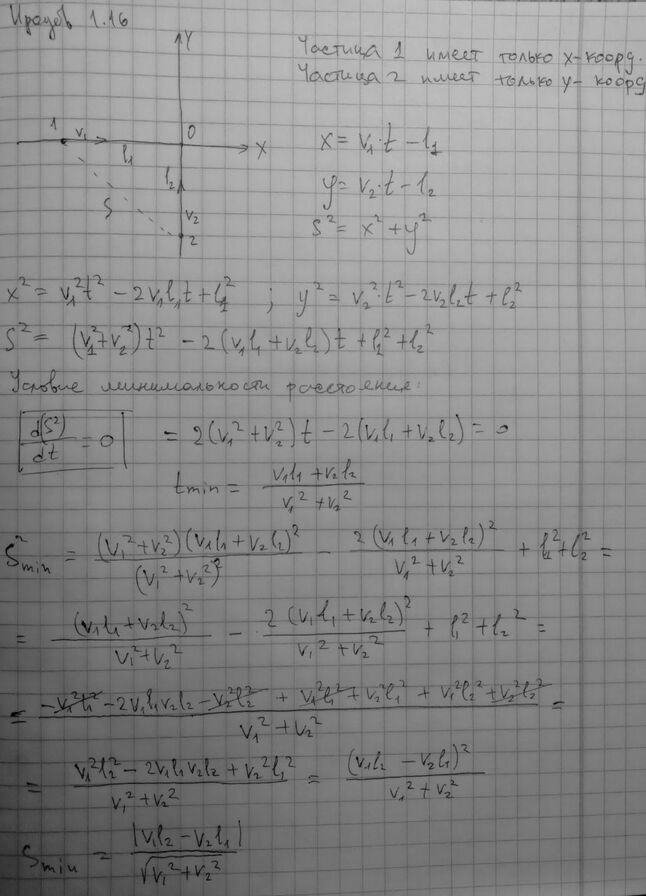 Иродов 1.16
Частица 1 имеет только x-коорд.
Частица 2 имеет только y-коорд
Y
1 v₁ l₁ 0 X
l₂
S v₂
2
x = v₁·t − l₁
y = v₂·t − l₂
S² = x² + y²
x² = v₁²t² − 2v₁l₁t + l₁² ; y² = v₂²·t² − 2v₂l₂t + l₂²
S² = (v₁² + v₂²)t² − 2(v₁l₁ + v₂l₂)t + l₁² + l₂²
Условие минимальности расстояния:
d(S²)/dt = 0 = 2(v₁² + v₂²)t − 2(v₁l₁ + v₂l₂) = 0
tmin = (v₁l₁ + v₂l₂)/(v₁² + v₂²)
S²min = (v₁² + v₂²)(v₁l₁ + v₂l₂)²/(v₁² + v₂²)² − 2(v₁l₁ + v₂l₂)²/(v₁² + v₂²) + l₁² + l₂² =
= (v₁l₁ + v₂l₂)²/(v₁² + v₂²) − 2(v₁l₁ + v₂l₂)²/(v₁² + v₂²) + l₁² + l₂² =
= (−v₁²l₁² − 2v₁l₁v₂l₂ − v₂²l₂² + v₁²l₁² + v₂²l₁² + v₁²l₂² + v₂²l₂²)/(v₁² + v₂²) =
= (v₁²l₂² − 2v₁l₁v₂l₂ + v₂²l₁²)/(v₁² + v₂²) = (v₁l₂ − v₂l₁)²/(v₁² + v₂²)
Smin = |v₁l₂ − v₂l₁|/√(v₁² + v₂²)